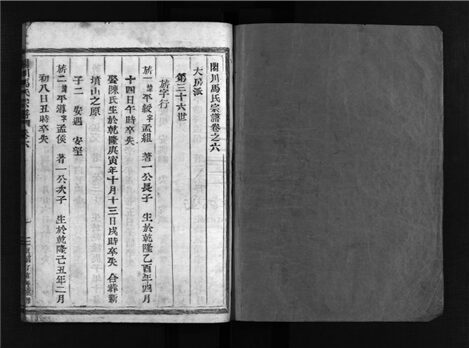 閣川馬氏宗譜卷之六
大房派
第三十六世
於字行
於一 諱平級字孟組 著一公長子 生於乾隆乙酉年四月
十四日午時卒失
娶陳氏生於乾隆庚寅年十月十三日戌時卒失 合葬新
墳山之原
子二 安遇 安望
於二 諱平 字孟 著一公次子 生於乾隆己丑年二月
初八日丑時卒失